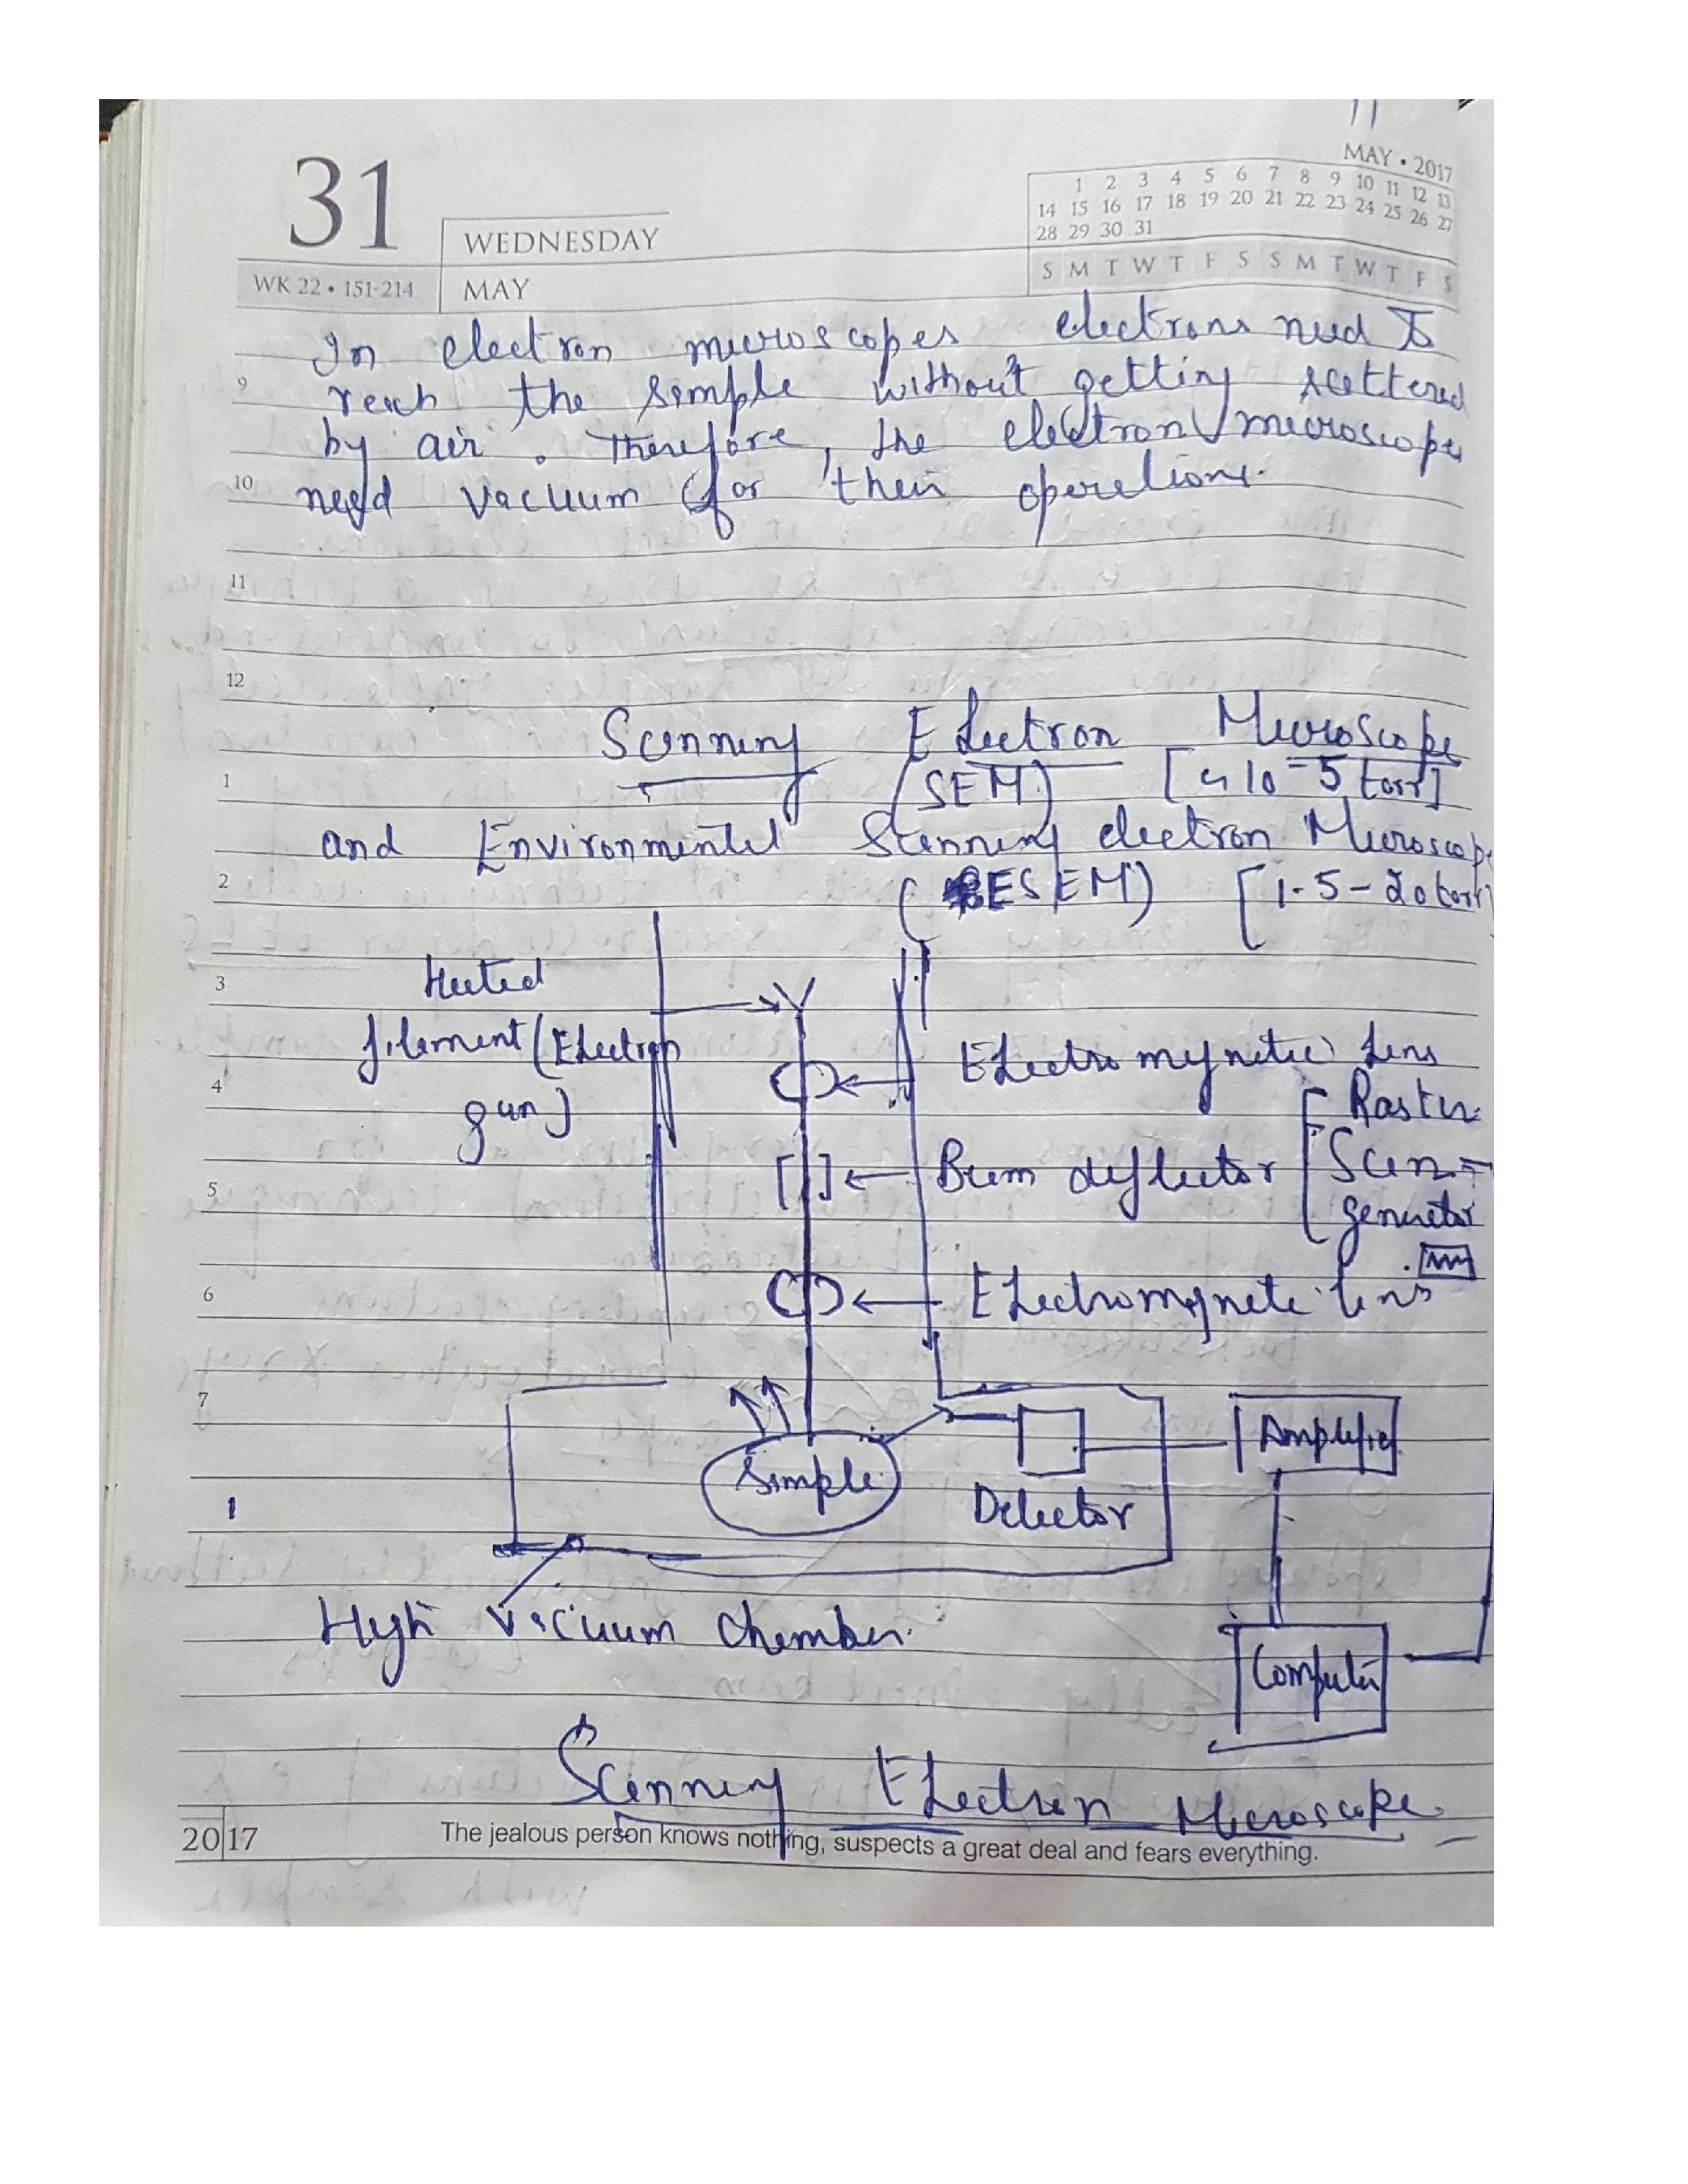 11
MAY • 2017
1 2 3 4 5 6 7 8 9 10 11 12 13
14 15 16 17 18 19 20 21 22 23 24 25 26 27
28 29 30 31
S M T W T F S S M T W T F S
31
WEDNESDAY
WK 22 • 151-214
MAY
In electron microscopes electrons need to
9 reach the sample without getting scattered
by air. Therefore, the electron microscopes
10 need vacuum for their operations.
11
12
Scanning Electron Microscope
1 (SEM) [10-5 torr]
and Environmental Scanning electron Microscope
2 (ESEM) [1.5-20 torr]
3 Heated
filament (Electron
gun)
4 Electromagnetic Lens
Raster
5 Beam deflector Scan-
generator
6 Electromagnetic Lens
7 Amplifier
Sample
Detector
High Vacuum Chamber.
Computer
Scanning Electron Microscope
2017
The jealous person knows nothing, suspects a great deal and fears everything.